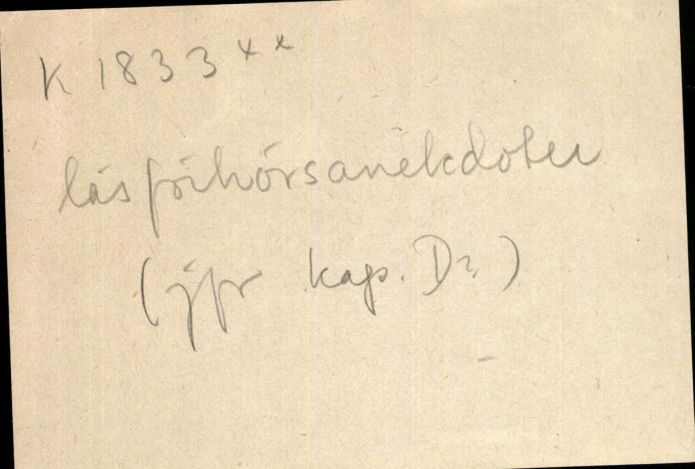 K 1833 xx
läsförhörsanekdoter
(jfr kap. D2.)